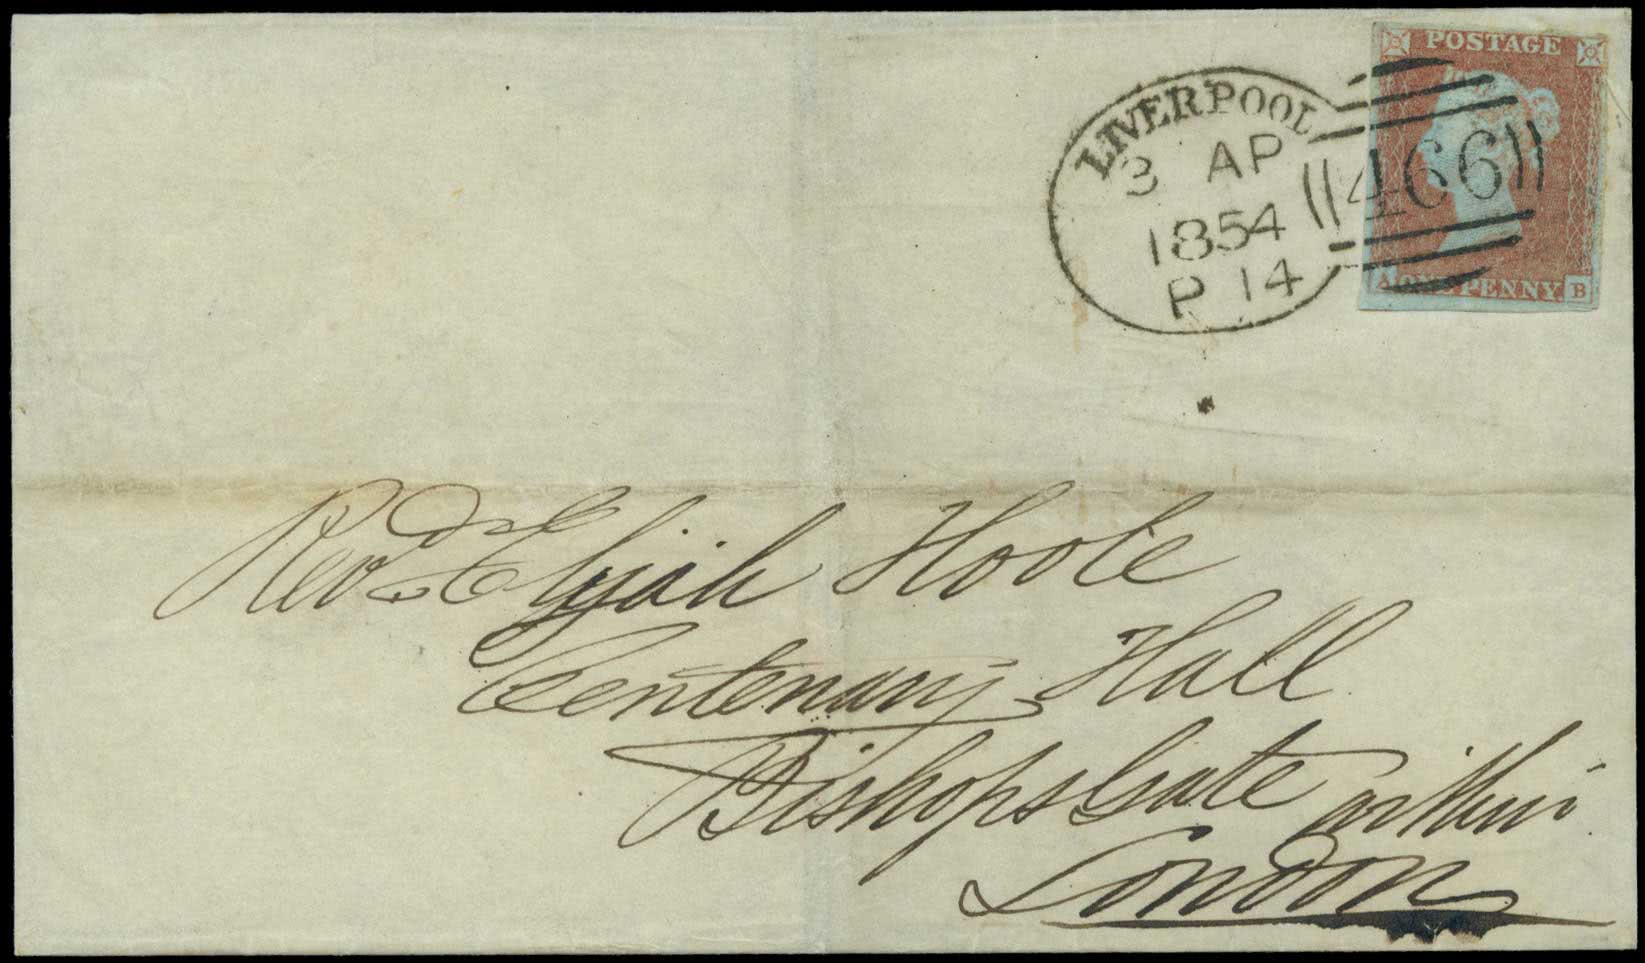 POSTAGE
LIVERPOOL
3 AP
1854
P 14
466
A ONE PENNY B
Revd Elijah Hoole
Centenary Hall
BishopsGate within
London